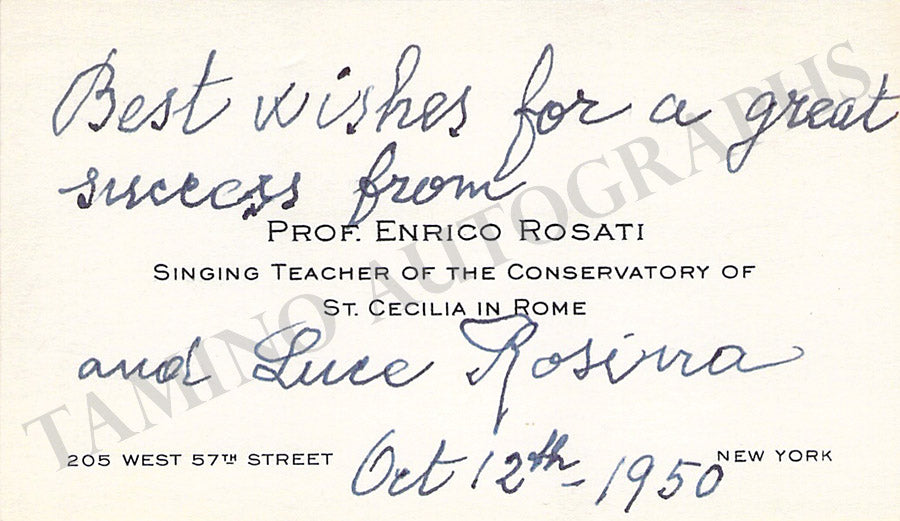 Best wishes for a great
success from
PROF. ENRICO ROSATI
SINGING TEACHER OF THE CONSERVATORY OF
ST. CECILIA IN ROME
and Luce
205 WEST 57TH STREET Oct 12th - 1950 NEW YORK
TAMINO AUTOGRAPHS